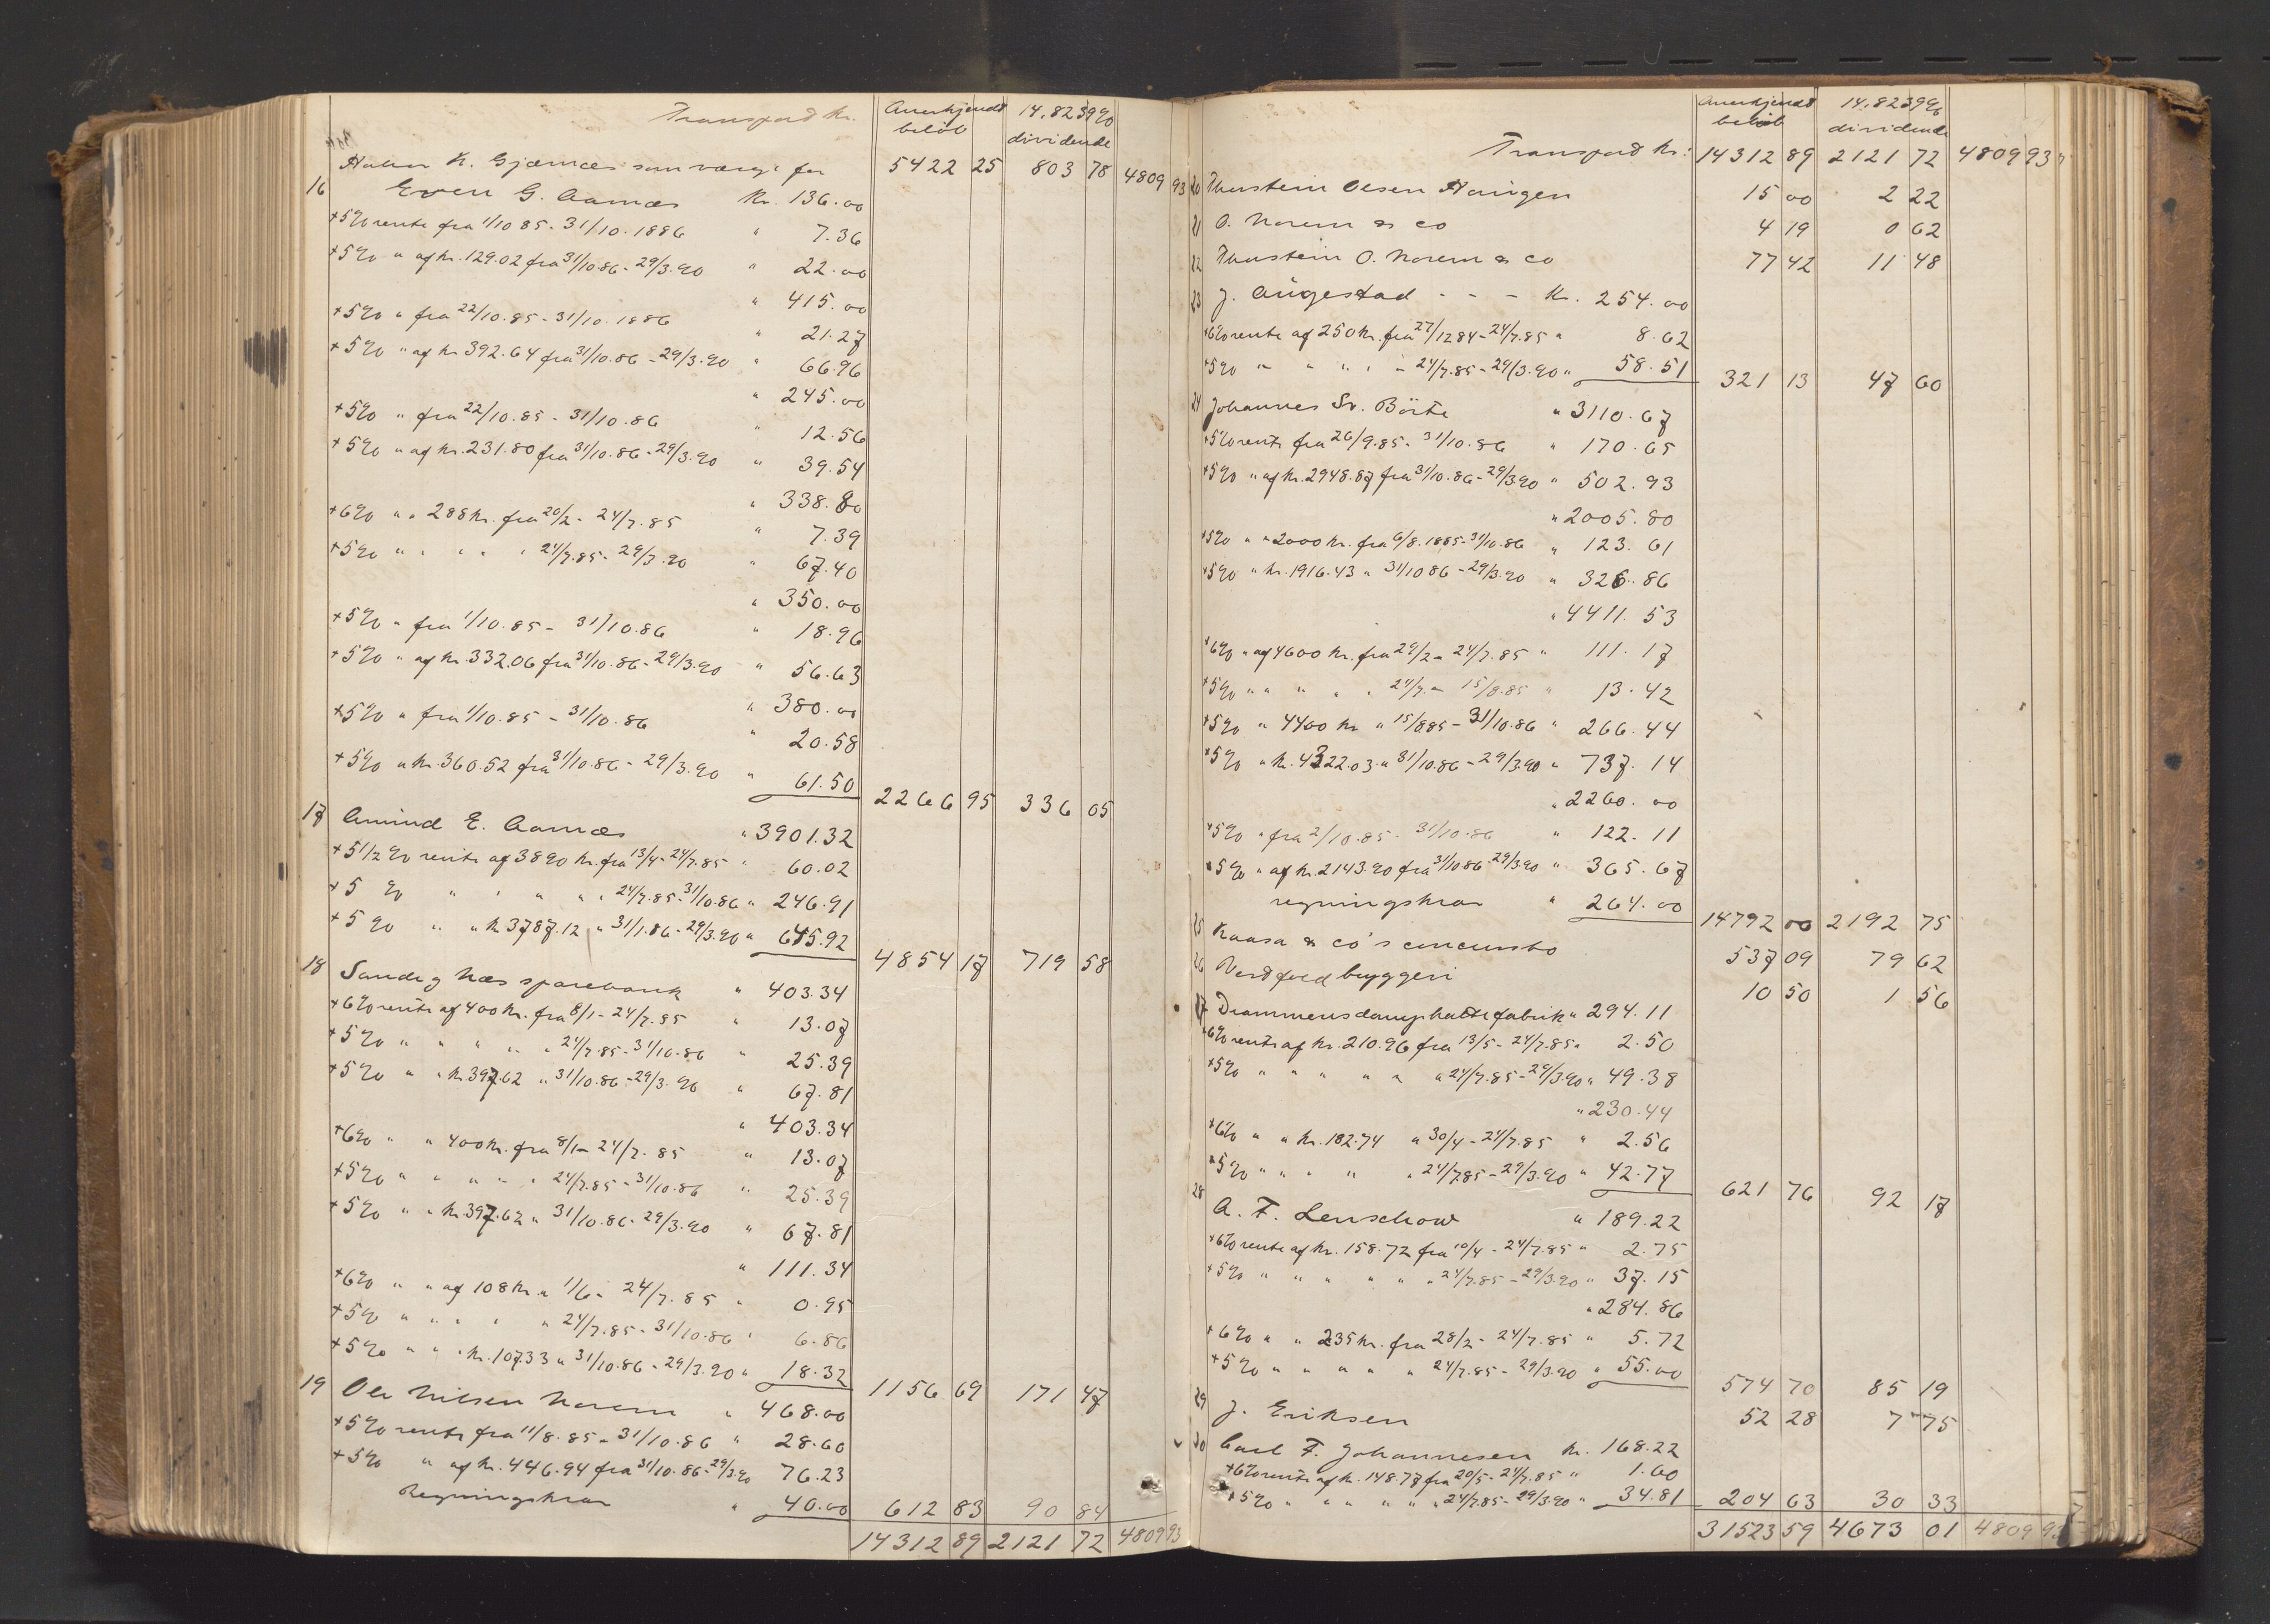 Transport Kr. Anerkjendt beløb 14.8239% dividende
5422 25 803 78 4809 93
16 Haken K. Gjærnæs som værge for
Even G. Aamæs Kr. 136.00
+5% rente fra 1/10 85 - 31/10.1886 " 7.36
+5% " af Kr. 129.02 fra 31/10.86 - 29/3.90 " 22.00
" 415.00
+5% " fra 22/10.85 - 31/10.1886 " 21.27
+5% " af Kr 392.64 fra 31/10.86 - 29/3.90 " 66.96
" 245.00
+5% " fra 22/10.85 - 31/10.86 " 12.56
+5% " af Kr. 231.80 fra 31/10.86 - 29/3.90 " 39.54
" 338.80
+6% " " 288 Kr. fra 20/2 - 24/7.85 " 7.39
+5% " " " " " 24/7.85 - 29/3.90 " 67.40
" 350.00
+5% " fra 1/10.85 - 31/10.86 " 18.96
+5% " af Kr. 332.06 fra 31/10.86 - 29/3.90 " 56.63
" 380.00
+5% " fra 1/10.85 - 31/10.86 " 20.58
+5% " Kr. 360.52 fra 31/10.86 - 29/3.90 " 61.50 2266 95 336 05
17 Amund E. Aamæs " 3901.32
+5 1/2 % rente af 3890 Kr. fra 13/4 - 24/7.85 " 60.02
+5 % " " " " " 24/7.85 - 31/10.86 " 246.91
+5 % " " Kr 3787.12 " 31/1.86 - 29/3.90 " 645.92 4854 17 719 58
18 Sand og Næs sparebank " 403.34
+6% rente af 400 Kr. fra 8/1 - 24/7.85 " 13.07
+5% " " " " " 24/7.85 - 31/10.86 " 25.39
+5% " " Kr 397.62 " 31/10.86 - 29/3.90 " 67.81
" 403.34
+6% " " 400 Kr. fra 8/1 - 24/7.85 " 13.07
+5% " " " " " 24/7.85 - 31/10.86 " 25.39
+5% " " Kr. 397.62 " 31/10.86 - 29/3.90 " 67.81
" 111.34
+6% " " af 108 Kr " 1/6 - 24/7.85 " 0.95
+5% " " " " " 24/7.85 - 31/10.86 " 6.86
+5% " " " Kr. 107.33 " 31/10.86 - 29/3.90 " 18.32 1156 69 171 47
19 Ole Nilsen Norem " 468.00
+5% rente fra 11/8.85 - 31/10.86 " 28.60
+5% " af Kr. 446.94 fra 31/10.86 - 29/3.90 76.23
Regningskrav " 40.00 612 83 90 84
14312 89 2121 72 4809 93
Anerkjendt beløb 14.8239% dividende
Transport Kr: 14312 89 2121 72 4809 93
20 Thorstein Olsen Haugen 15 00 2 22
21 O. Norem & co 4 19 0 62
22 Thorstein O. Norem & co 77 42 11 48
23 J. Augestad - - - Kr. 254.00
+6% rente af 250 Kr. fra 27/12 84 - 24/7.85 " 8.62
+5% " " " " " 24/7.85 - 29/3.90 " 58.51 321 13 47 60
24 Johannes Sv. Börte " 3110.67
+5% rente fra 26/9.85 - 31/10.86 " 170.65
+5% " af Kr. 2948.87 fra 31/10.86 - 29/3 90 " 502.93
" 2005.80
+5% " " 2000 Kr. fra 6/8.1885 - 31/10.86 " 123.61
+5% " Kr. 1916.43 " 31/10 86 - 29/3.90 " 326.86
" 4411.53
+6% " af 4600 Kr. fra 29/2 - 24/7.85 " 111.17
+5% " " " " " 24/7. - 15/8.85 " 13.42
+5% " 4400 Kr " 15/8.85 - 31/10.86 " 266.44
+5% " Kr. 4322.03 " 31/10.86 - 29/3.90 " 737.14
" 2260.00
+5% " fra 2/10.85 - 31/10.86 " 122.11
+5% " af Kr. 2143.90 fra 31/10 86 - 29/3.90 " 365.67
regningskrav " 264.00 14792 00 2192 75
25 Kaasa & co's concursbo 537 09 79 62
26 Nordfred bryggeri 10 50 1 56
27 Drammens damphattefabrik " 294.11
+6% rente af Kr. 210.96 fra 13/5 - 24/7.85 " 2.50
+5% " " " " " " 24/7.85 - 29/3.90 " 49.38
" 230.44
+6% " " Kr. 182.74 " 30/4 - 24/7.85 " 2.56
+5% " " " " " 24/7.85 - 29/3.90 " 42.77 621 76 92 17
28 A. F. Lenschow " 189.22
+6% rente af Kr. 158.72 fra 10/4 - 24/7.85 " 2.75
+5% " " " " " " 24/7.85 - 29/3.90 " 37.15
" 284.86
+6% " " 235 Kr. fra 28/2 - 24/7.85 " 5.72
+5% " " " " " 24/7.85 - 29/3.90 " 55.00 574 70 85 19
29 J. Eriksen 52 28 7 75
30 Carl F. Johannesen Kr. 168.22
+6% rente af Kr. 148.77 fra 20/5 - 24/7.85 " 1.60
+5% " " " " " " 24/7.85 - 29/3.90 " 34.81 204 63 30 33
31523 59 4673 01 4809 93